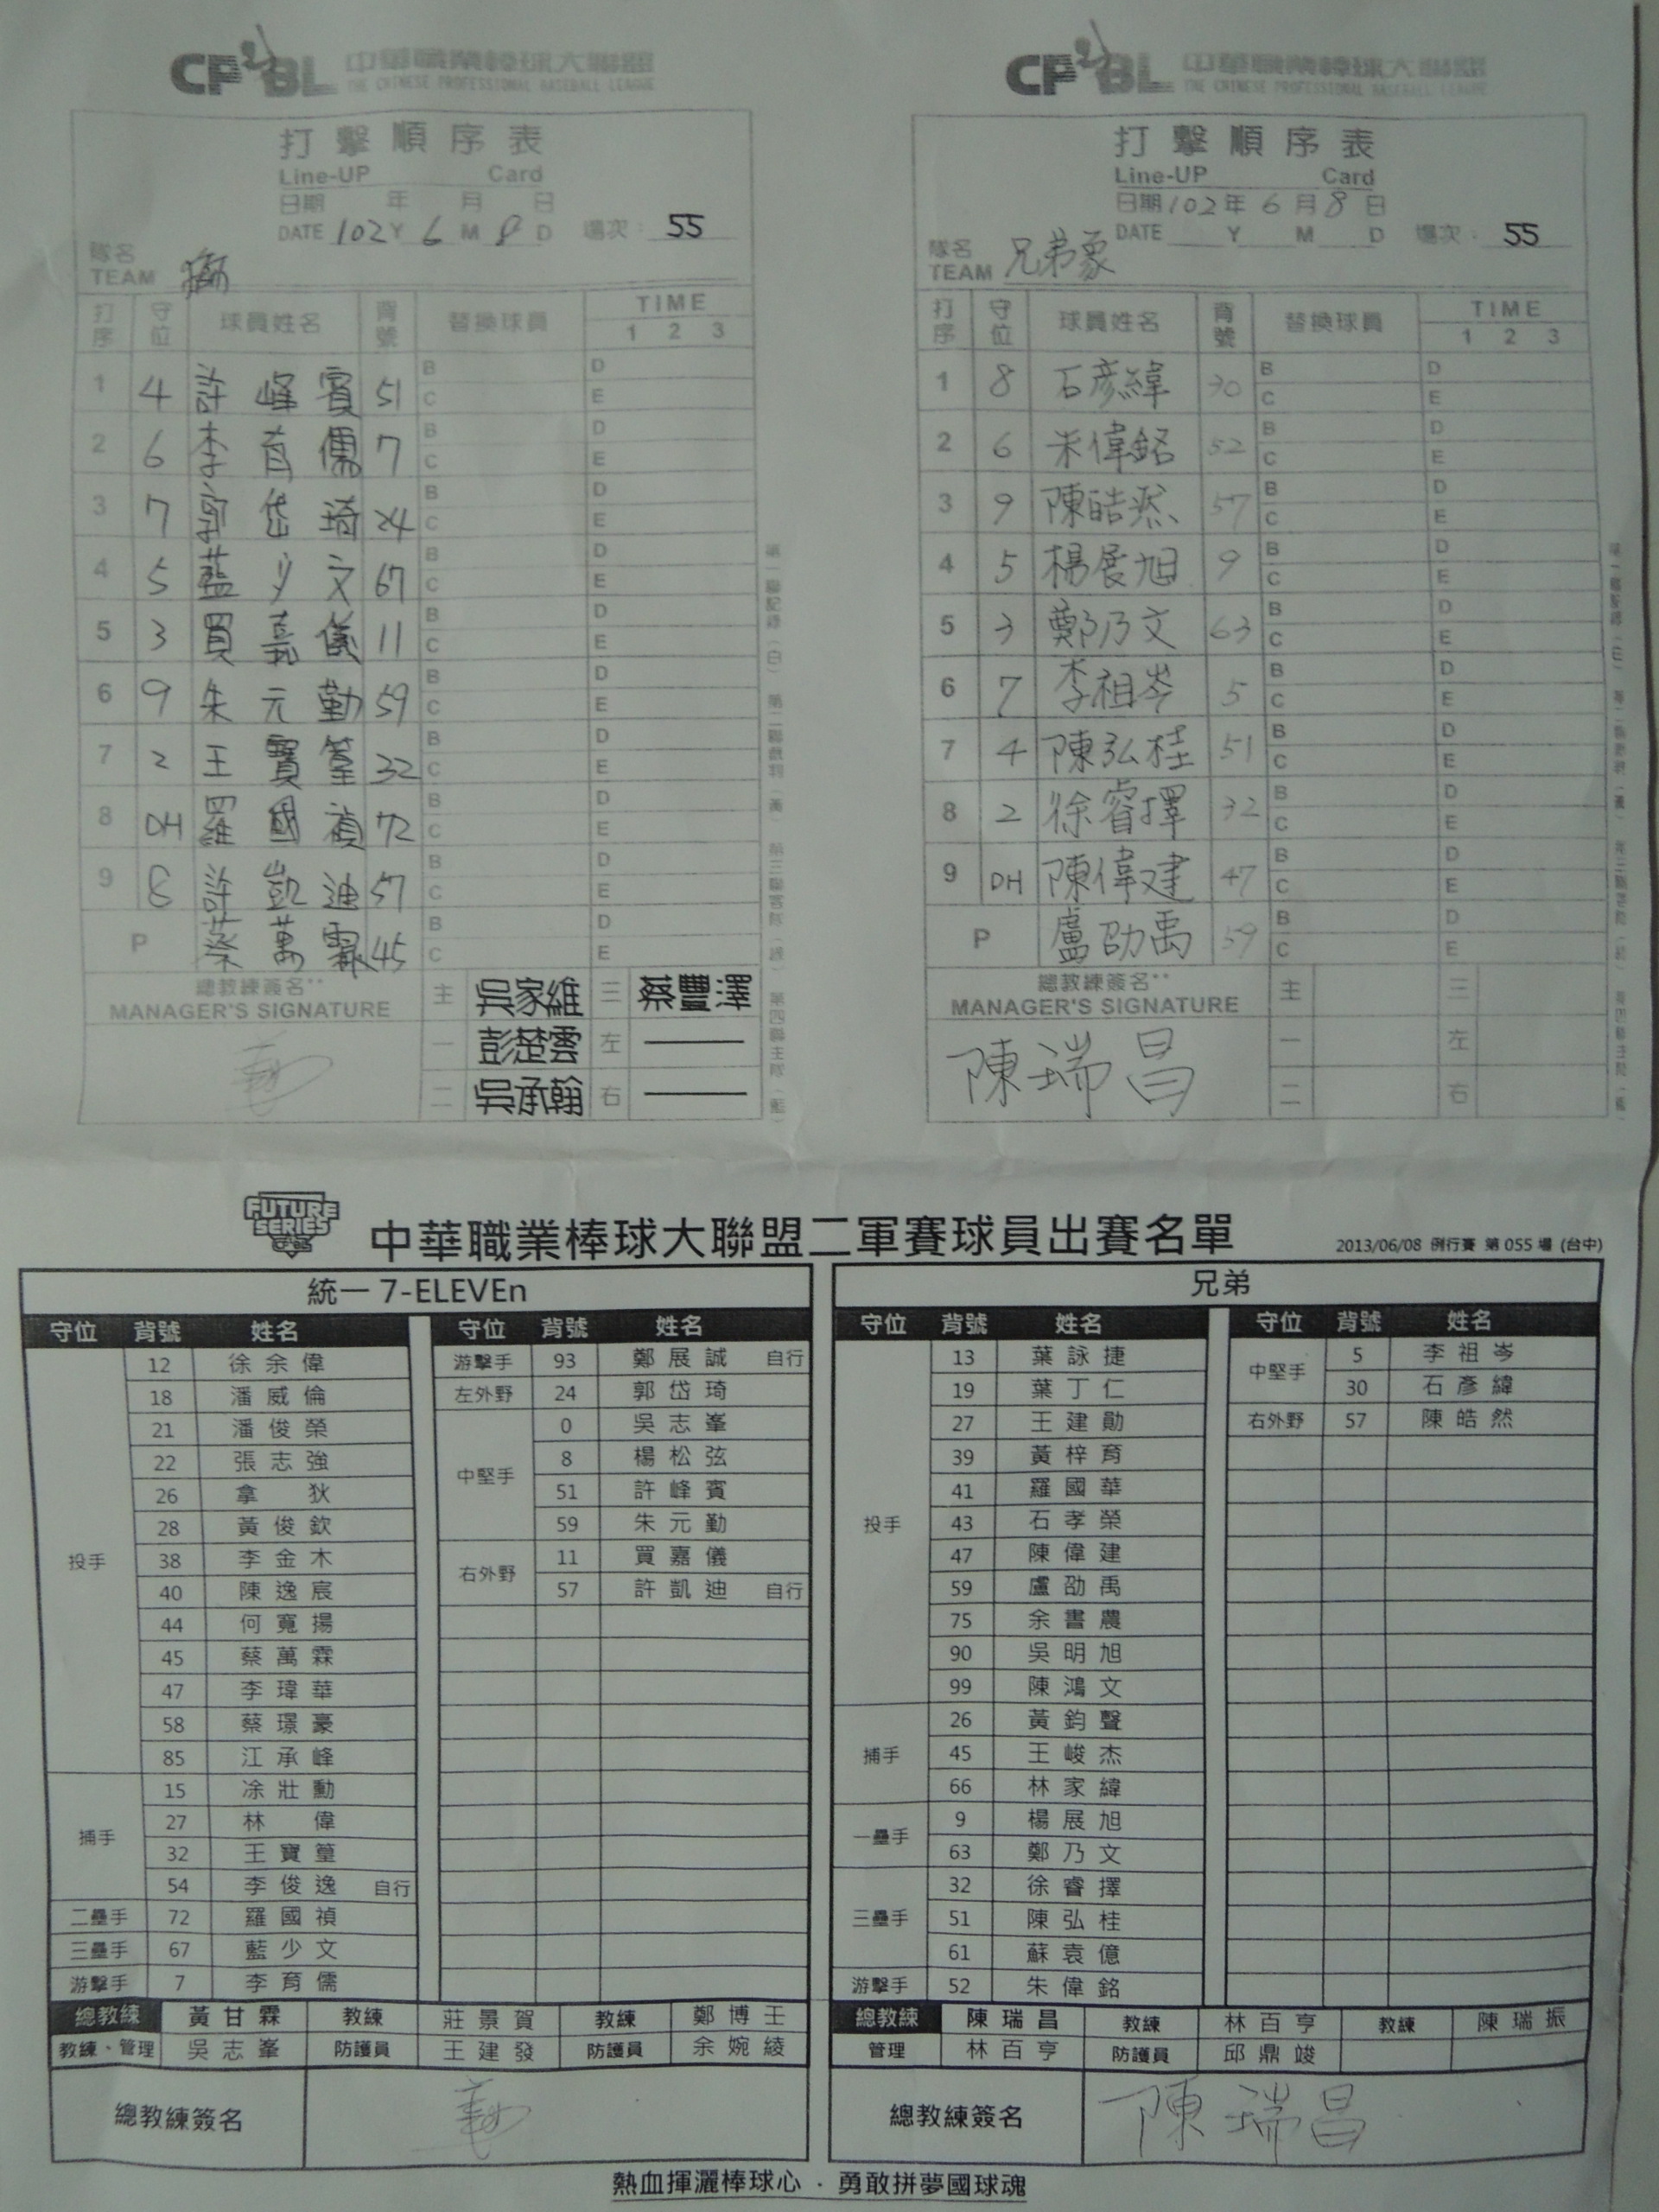 CPBL 中華職業棒球大聯盟
THE CHINESE PROFESSIONAL BASEBALL LEAGUE
打擊順序表
Line-UP Card
日期 年 月 日
DATE 102 Y 6 M 8 D 場次: 55
隊名
TEAM 獅
打序 守位 球員姓名 背號 替換球員 TIME
1 2 3
1 4 許峰賓 51 B C D E
2 6 李育儒 7 B C D E
3 7 郭岱琦 24 B C D E
4 5 藍少文 67 B C D E
5 3 買嘉儀 11 B C D E
6 9 朱元勤 59 B C D E
7 2 王寶篁 32 B C D E
8 DH 羅國禎 72 B C D E
9 8 許凱迪 57 B C D E
P 蔡萬霖 45 B C D E
總教練簽名**
MANAGER'S SIGNATURE
主 吳家維 三 蔡豐澤
一 彭楚雲 左
二 吳承翰 右
CPBL 中華職業棒球大聯盟
THE CHINESE PROFESSIONAL BASEBALL LEAGUE
打擊順序表
Line-UP Card
日期 102 年 6 月 8 日
DATE Y M D 場次: 55
隊名
TEAM 兄弟象
打序 守位 球員姓名 背號 替換球員 TIME
1 2 3
1 8 石彥緯 30 B C D E
2 6 朱偉銘 52 B C D E
3 9 陳皓然 57 B C D E
4 5 楊展旭 9 B C D E
5 3 鄭乃文 63 B C D E
6 7 李祖岑 5 B C D E
7 4 陳弘桂 51 B C D E
8 2 徐睿擇 32 B C D E
9 DH 陳偉建 47 B C D E
P 盧劭禹 59 B C D E
總教練簽名**
MANAGER'S SIGNATURE
陳瑞昌
主 三
一 左
二 右
FUTURE SERIES
中華職業棒球大聯盟二軍賽球員出賽名單
2013/06/08 例行賽 第 055 場 (台中)
統一 7-ELEVEn
守位 背號 姓名
投手
12 徐余偉
18 潘威倫
21 潘俊榮
22 張志強
26 拿狄
28 黃俊欽
38 李金木
40 陳逸宸
44 何寬揚
45 蔡萬霖
47 李瑋華
58 蔡璟豪
85 江承峰
捕手
15 凃壯勳
27 林偉
32 王寶篁
54 李俊逸 自行
二壘手 72 羅國禎
三壘手 67 藍少文
游擊手 7 李育儒
守位 背號 姓名
游擊手 93 鄭展誠 自行
左外野 24 郭岱琦
中堅手
0 吳志峯
8 楊松弦
51 許峰賓
59 朱元勤
右外野
11 買嘉儀
57 許凱迪 自行
總教練 黃甘霖 教練 莊景賀 教練 鄭博壬
教練、管理 吳志峯 防護員 王建發 防護員 余婉綾
總教練簽名
兄弟
守位 背號 姓名
投手
13 葉詠捷
19 葉丁仁
27 王建勛
39 黃梓育
41 羅國華
43 石孝榮
47 陳偉建
59 盧劭禹
75 余書農
90 吳明旭
99 陳鴻文
捕手
26 黃鈞聲
45 王峻杰
66 林家緯
一壘手
9 楊展旭
63 鄭乃文
三壘手
32 徐睿擇
51 陳弘桂
61 蘇袁億
游擊手 52 朱偉銘
守位 背號 姓名
中堅手
5 李祖岑
30 石彥緯
右外野 57 陳皓然
總教練 陳瑞昌 教練 林百亨 教練 陳瑞振
管理 林百亨 防護員 邱鼎竣
總教練簽名 陳瑞昌
熱血揮灑棒球心 · 勇敢拼夢國球魂